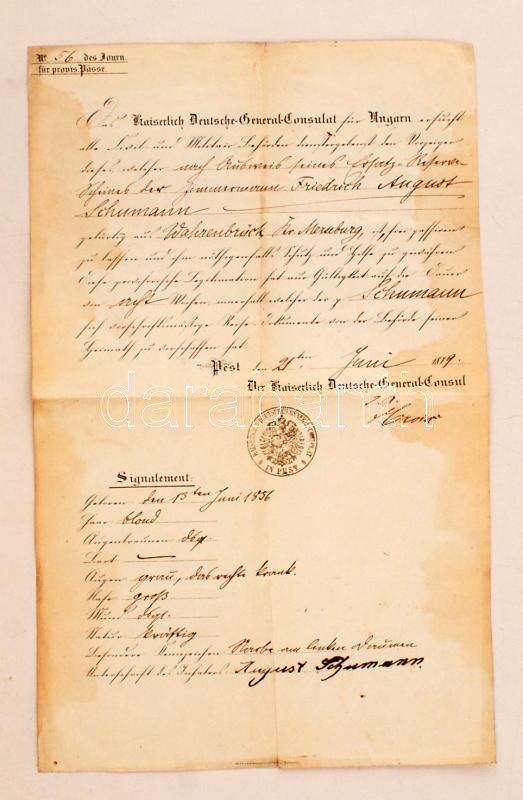 No 56 des Journ.
für provis. Pässe.
Das Kaiserlich Deutsche-General-Consulat für Ungarn ersucht
alle Civil und Militair Behörden dienstergebenst den Vorzeiger
dieses welcher nach Ausweis seines Ersatz-Reserve-
Scheines der Zimmermann Friedrich August
Schumann
gebürtig aus Wahrenbrück Kr. Merseburg, ist, frei passiren
zu lassen und ihm nöthigenfalls Schutz und Hilfe zu gewähren
Diese provisorische Legitimation hat nur Gültigkeit auf die Dauer
von acht Wochen, innerhalb welcher der p. Schumann
sich vorschriftsmässige Reise Dokumente von der Behörde seiner
Heimath zu verschaffen hat.
Pest den 21ten Juni 1879.
Der Kaiserlich Deutsche-General-Consul
darabanth.com
IN PEST
Signalement:
Geboren den 13ten Juni 1836
Haar blond
Augenbraunen dsgl.
Bart —
Augen grau, das rechte krank.
Nase groß
Mund dsgl.
Statur kräftig
Besondere Kennzeichen Narbe am linken Daumen
Unterschrift des Inhabers August Schumann.